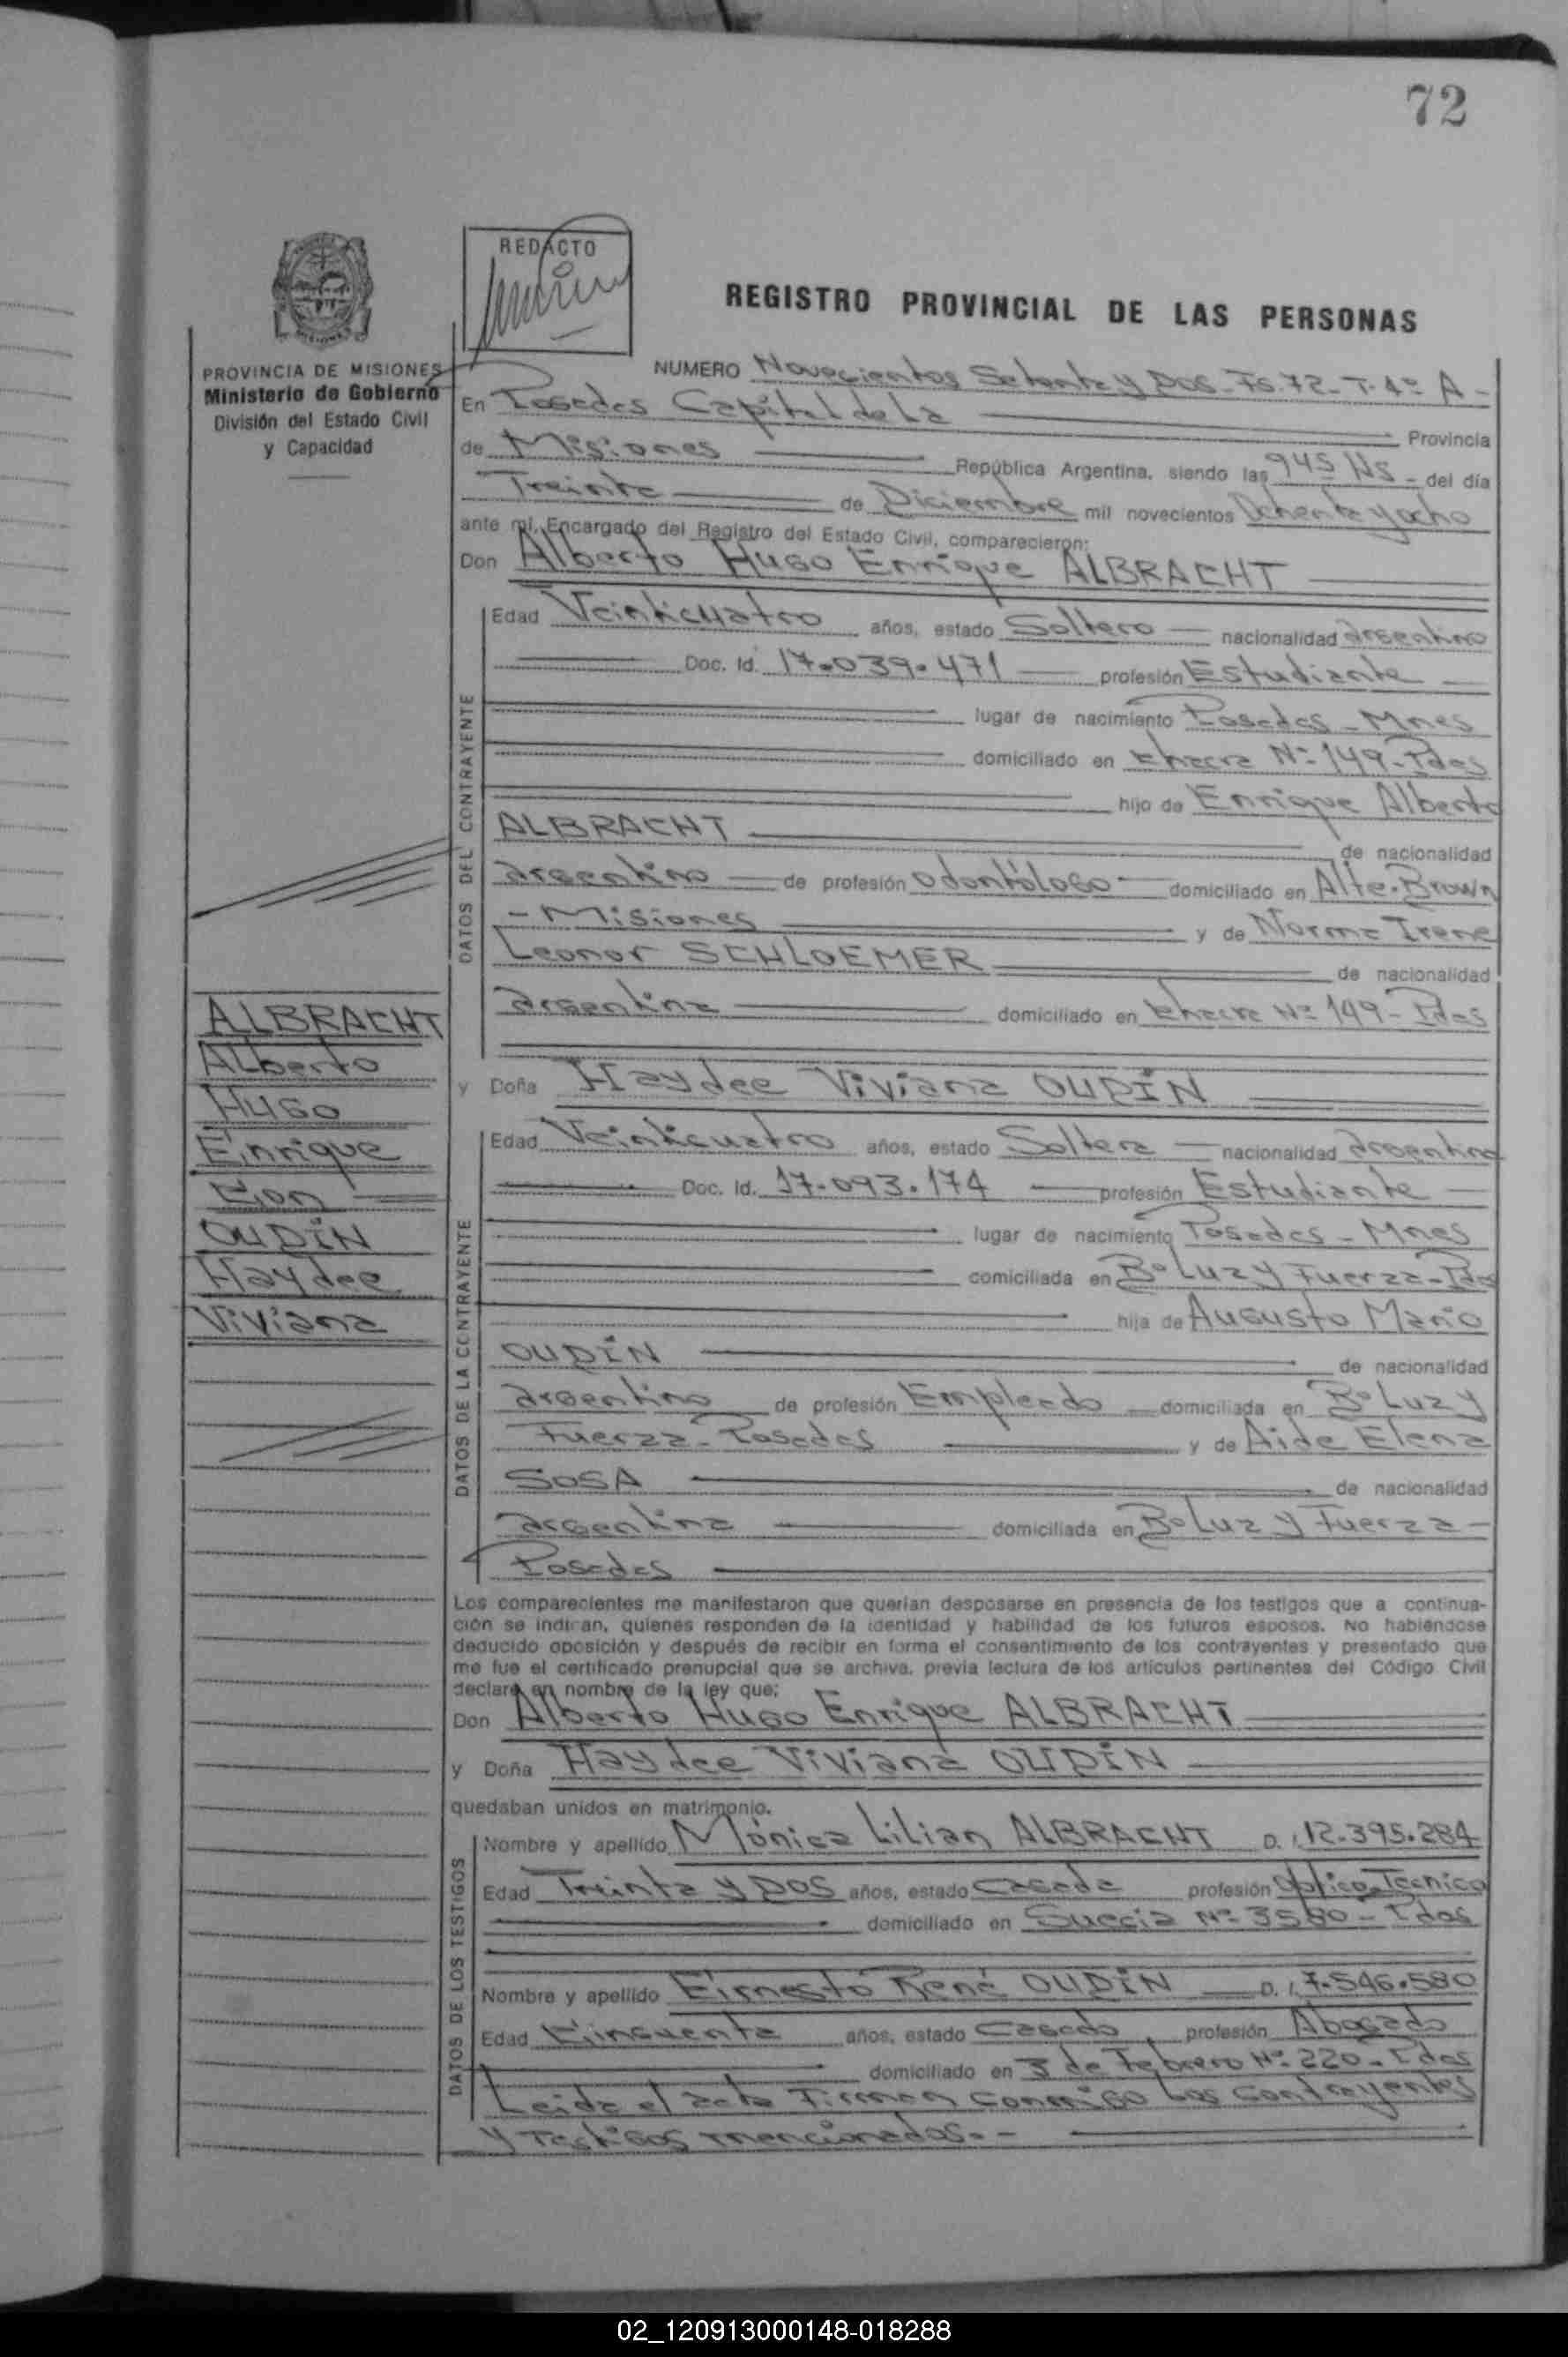 72
REDACTO
REGISTRO PROVINCIAL DE LAS PERSONAS
PROVINCIA DE MISIONES
Ministerio de Gobierno
División del Estado Civil
y Capacidad
NUMERO Novecientos Setenta y Dos - Fs. 72 - T. 4º A -
En Posadas Capital de La Provincia
de Misiones República Argentina, siendo las 945 Hs - del día
Treinta de Diciembre mil novecientos Ochenta y ocho
ante mí, Encargado del Registro del Estado Civil, comparecieron:
Don Alberto Hugo Enrique ALBRACHT
DATOS DEL CONTRAYENTE
Edad Veinticuatro años, estado Soltero nacionalidad argentino
Doc. Id. 17.039.471 profesión Estudiante
lugar de nacimiento Posadas - Mnes
domiciliado en Chacra Nº 149 - Pdas
hijo de Enrique Alberto
ALBRACHT de nacionalidad
argentino de profesión Odontólogo domiciliado en Alte. Brown
- Misiones y de Norma Irene
Leonor SCHLOEMER de nacionalidad
argentina domiciliado en Chacra Nº 149 - Pdas
ALBRACHT
Alberto
Hugo
Enrique
Con
OUDÍN
Haydee
Viviana
y Doña Haydee Viviana OUDÍN
DATOS DE LA CONTRAYENTE
Edad Veinticuatro años, estado Soltera nacionalidad argentina
Doc. Id. 17.093.174 profesión Estudiante
lugar de nacimiento Posadas - Mnes
domiciliada en Bº Luz y Fuerza - Pdas
hija de Augusto Mario
OUDÍN de nacionalidad
argentino de profesión Empleado domiciliada en Bº Luz y
Fuerza - Posadas y de Aide Elena
SOSA de nacionalidad
argentina domiciliada en Bº Luz y Fuerza -
Posadas
Los comparecientes me manifestaron que querían desposarse en presencia de los testigos que a continua-
ción se indican, quienes responden de la identidad y habilidad de los futuros esposos. No habiéndose
deducido oposición y después de recibir en forma el consentimiento de los contrayentes y presentado que
me fue el certificado prenupcial que se archiva, previa lectura de los artículos pertinentes del Código Civil
declaré en nombre de la ley que:
Don Alberto Hugo Enrique ALBRACHT
y Doña Haydee Viviana OUDÍN
quedaban unidos en matrimonio.
DATOS DE LOS TESTIGOS
Nombre y apellido Mónica Lilian ALBRACHT D. I. 12.395.284
Edad Treinta y Dos años, estado Casada profesión Optico Tecnico
domiciliado en Suecia Nº 3580 - Pdas
Nombre y apellido Ernesto René OUDÍN D. I. 7.546.580
Edad Cincuenta años, estado Casado, profesión Abogado
domiciliado en 3 de Febrero Nº 220 - Pdas
Leida el acta Firman conmigo Los Contrayentes
y Testigos mencionados. -
02_120913000148-018288